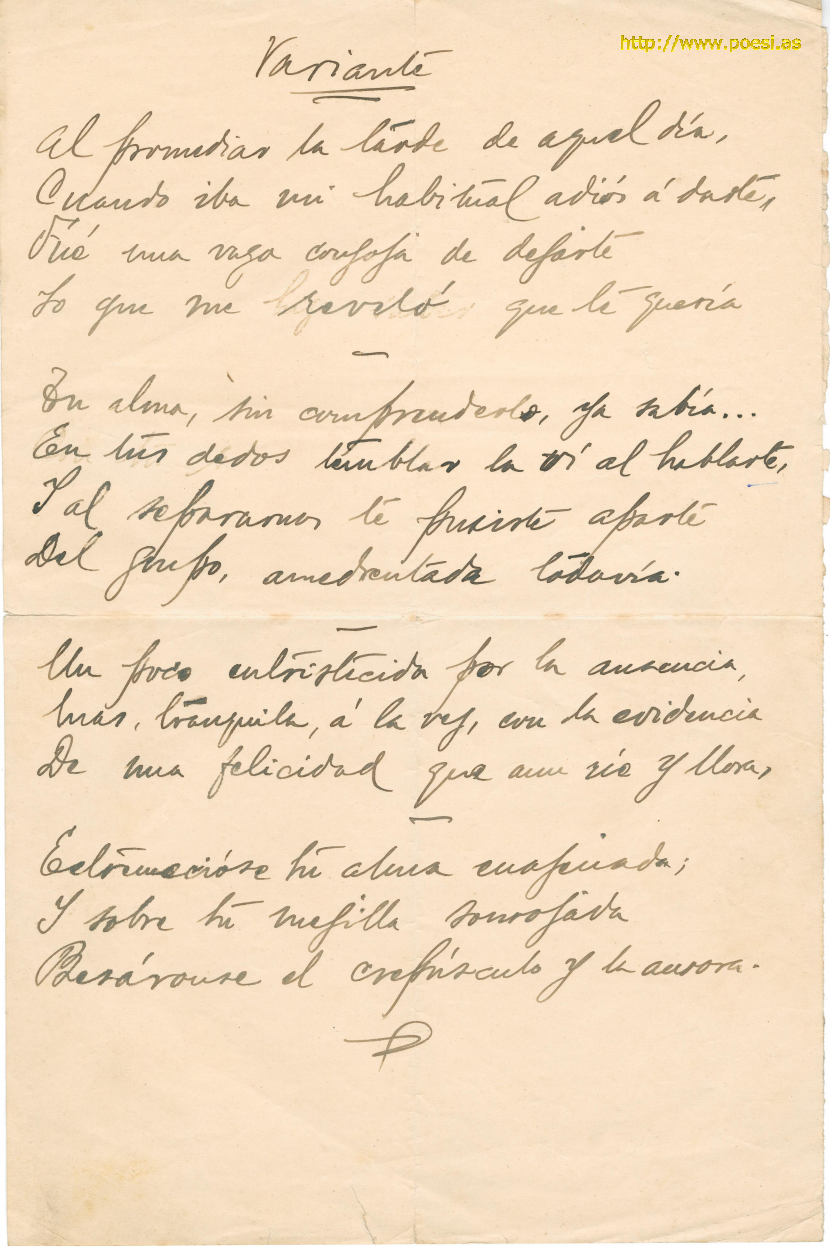 http://www.poesi.as
Variante
Al promediar la tarde de aquel día,
Cuando iba mi habitual adiós á darte,
Fué una vaga congoja de dejarte
Lo que me reveló que te quería
Tu alma, sin comprenderlo, ya sabía...
En tus dedos temblar la ví al hablarte,
Y al separarnos te pusiste aparte
Del grupo, amedrentada todavía.
Un poco entristecida por la ausencia,
Mas, tranquila, á la vez, con la evidencia
De una felicidad que aun ríe y llora,
Estremecióse tu alma enajenada;
Y sobre tu mejilla sonrojada
Besáronse el crepúsculo y la aurora.